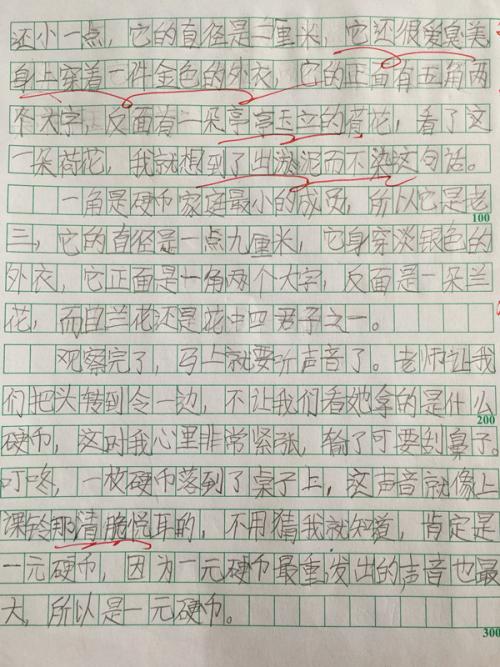 还小一点，它的直径是二厘米，它还很爱臭美
身上穿着一件金色的外衣，它的正面有五角两
个大字，反面有一朵亭亭玉立的荷花，看了这
一朵荷花，我就想到了出淤泥而不染这句话。
一角是硬币家庭最小的成员，所以它是老
100
三，它的直径是一点九厘米，它身穿淡银色的
外衣，它正面是一角两个大字，反面是一朵兰
花，而且兰花还是花中四君子之一。
观察完了，马上就要听声音了。老师让我
们把头转到令一边，不让我们看她拿的是什么
200
硬币，这时我心里非常紧张，输了可要刮鼻子。
叮咚，一枚硬币落到了桌子上，这声音就像上
课铃那清脆悦耳的，不用猜我就知道，肯定是
一元硬币，因为一元硬币最重发出的声音也最
大，所以是一元硬币。
300